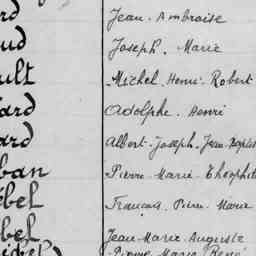 ard Jean-Ambroise
ud Joseph. Marie
ult Michel-Henri-Robert
ard Adolphe. Henri
ard Albert-Joseph-Jean-Baptis
ban Pierre-Marie-Théophil
ébel François-Pierre-Marie
bel Jean-Marie-Auguste
Pierre Marie René